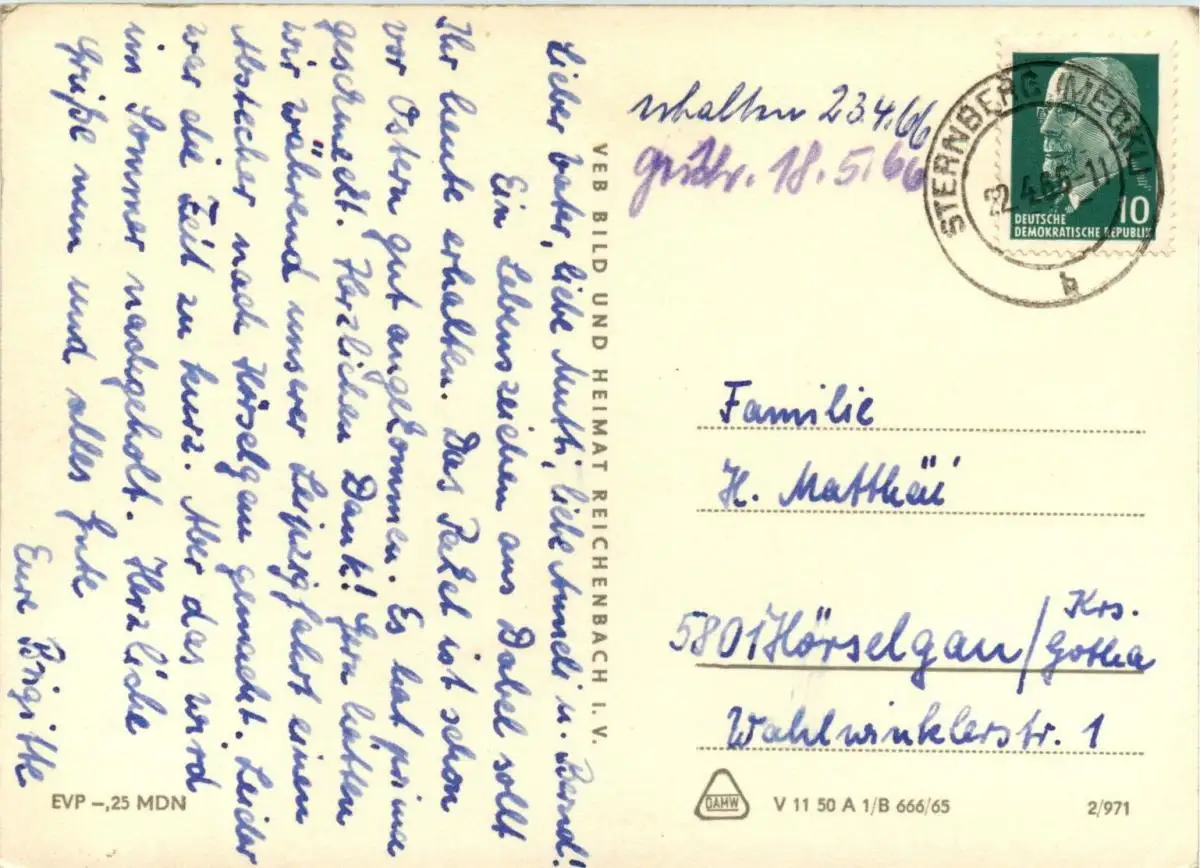 Lieber Vater, liebe Mutti, liebe Anneli u. Bernd!
Ein Lebenszeichen aus Dabel sollt
Ihr heute erhalten. Das Paket ist schon
vor Ostern gut angekommen. Es hat prima
geschmeckt. Herzlichen Dank! Gern hätten
wir während unserer Leipzigfahrt einen
Abstecher nach Hörselgau gemacht. Leider
war die Zeit zu kurz. Aber das wird
im Sommer nachgeholt. Herzliche
Grüße nun und alles Gute
Eure Brigitte
EVP –,25 MDN
VEB BILD UND HEIMAT REICHENBACH I. V.
erhalten 23.4.66
geschr. 18.5.66
STERNBERG (MECKL)
22.4.66-11
b
10
DEUTSCHE
DEMOKRATISCHE REPUBLIK
Familie
H. Matthäi
5801 Hörselgau / Krs. Gotha
Wahlwinklerstr. 1
DAMW
V 11 50 A 1/B 666/65
2/971